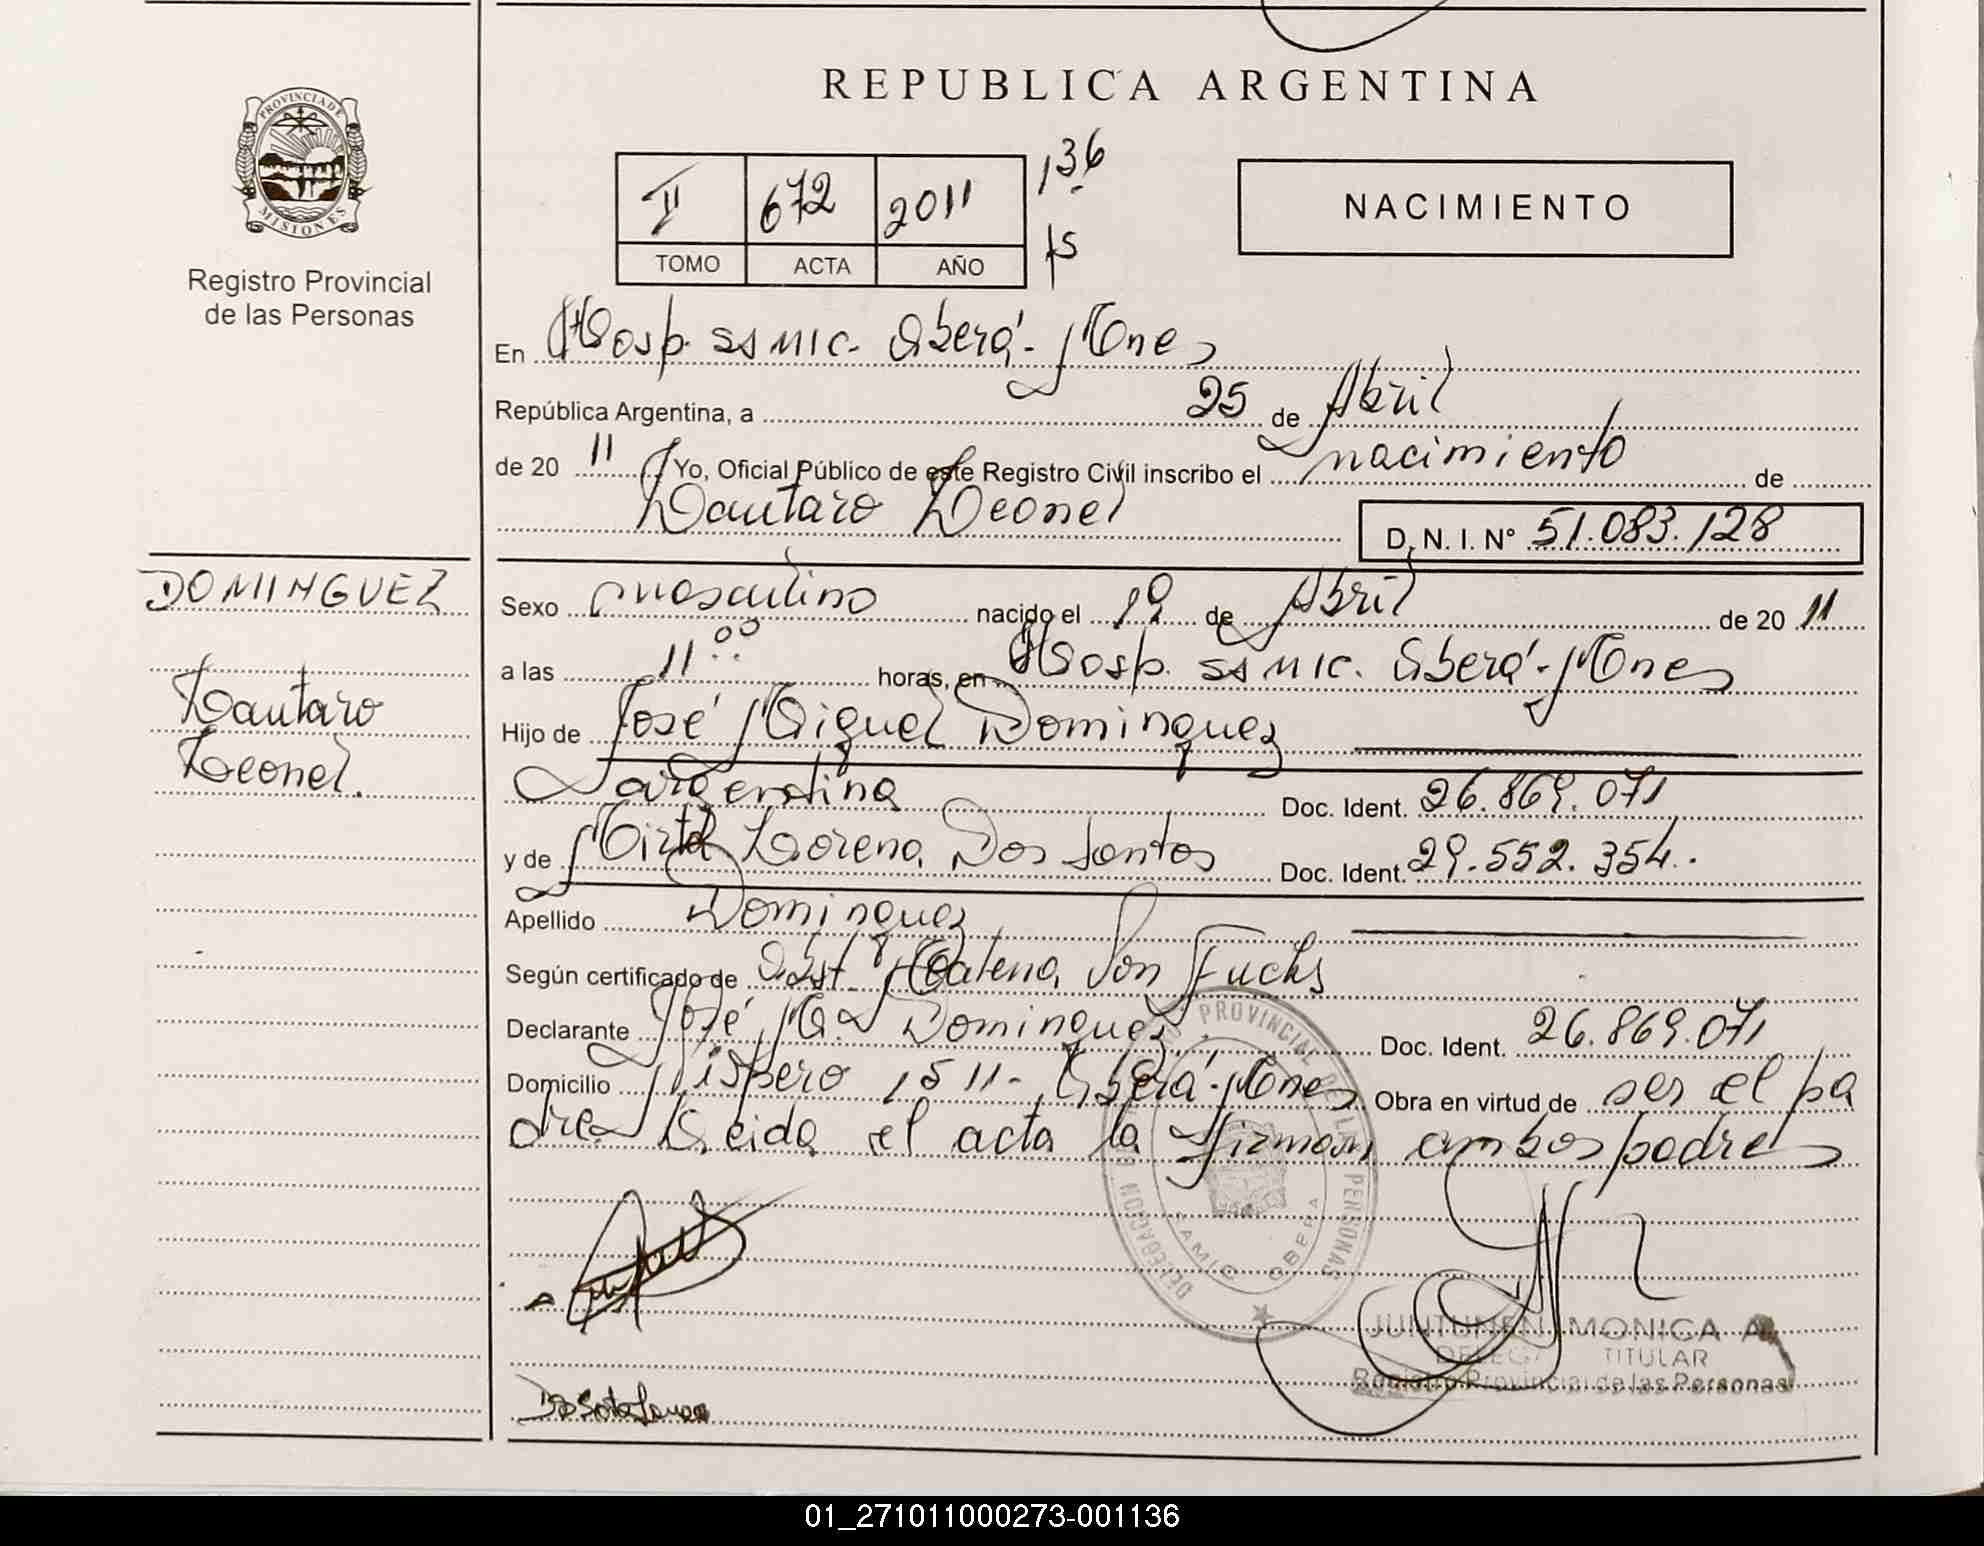 REPUBLICA ARGENTINA
PROVINCIA DE
MISIONES
Registro Provincial
de las Personas
II 672 2011 136
TOMO ACTA AÑO fs
NACIMIENTO
En Hosp. SAMIC. Oberá - Mnes
República Argentina, a 25 de Abril
de 20 11 Yo, Oficial Público de este Registro Civil inscribo el nacimiento de
Lautaro Leonel D.N.I. Nº 51.083.128
DOMINGUEZ
Lautaro
Leonel.
Sexo masculino nacido el 19 de Abril de 20 11
a las 11 00 horas, en Hosp. SAMIC. Oberá - Mnes
Hijo de José Miguel Dominguez
argentina Doc. Ident. 26.869.071
y de Mirta Lorena Dos Santos Doc. Ident. 29.552.354.
Apellido Dominguez
Según certificado de Obst. Von Fuchs
Declarante José M. Dominguez Doc. Ident. 26.869.071
Domicilio Níspero 1511 - Oberá - Mnes Obra en virtud de ser el pa
dre Leida el acta la firman ambos padres
DELEGACION PROVINCIAL DE LAS PERSONAS
SAMIC OBERA
JUNTUNEN MONICA A
TITULAR
Registro Provincial de las Personas
01_271011000273-001136